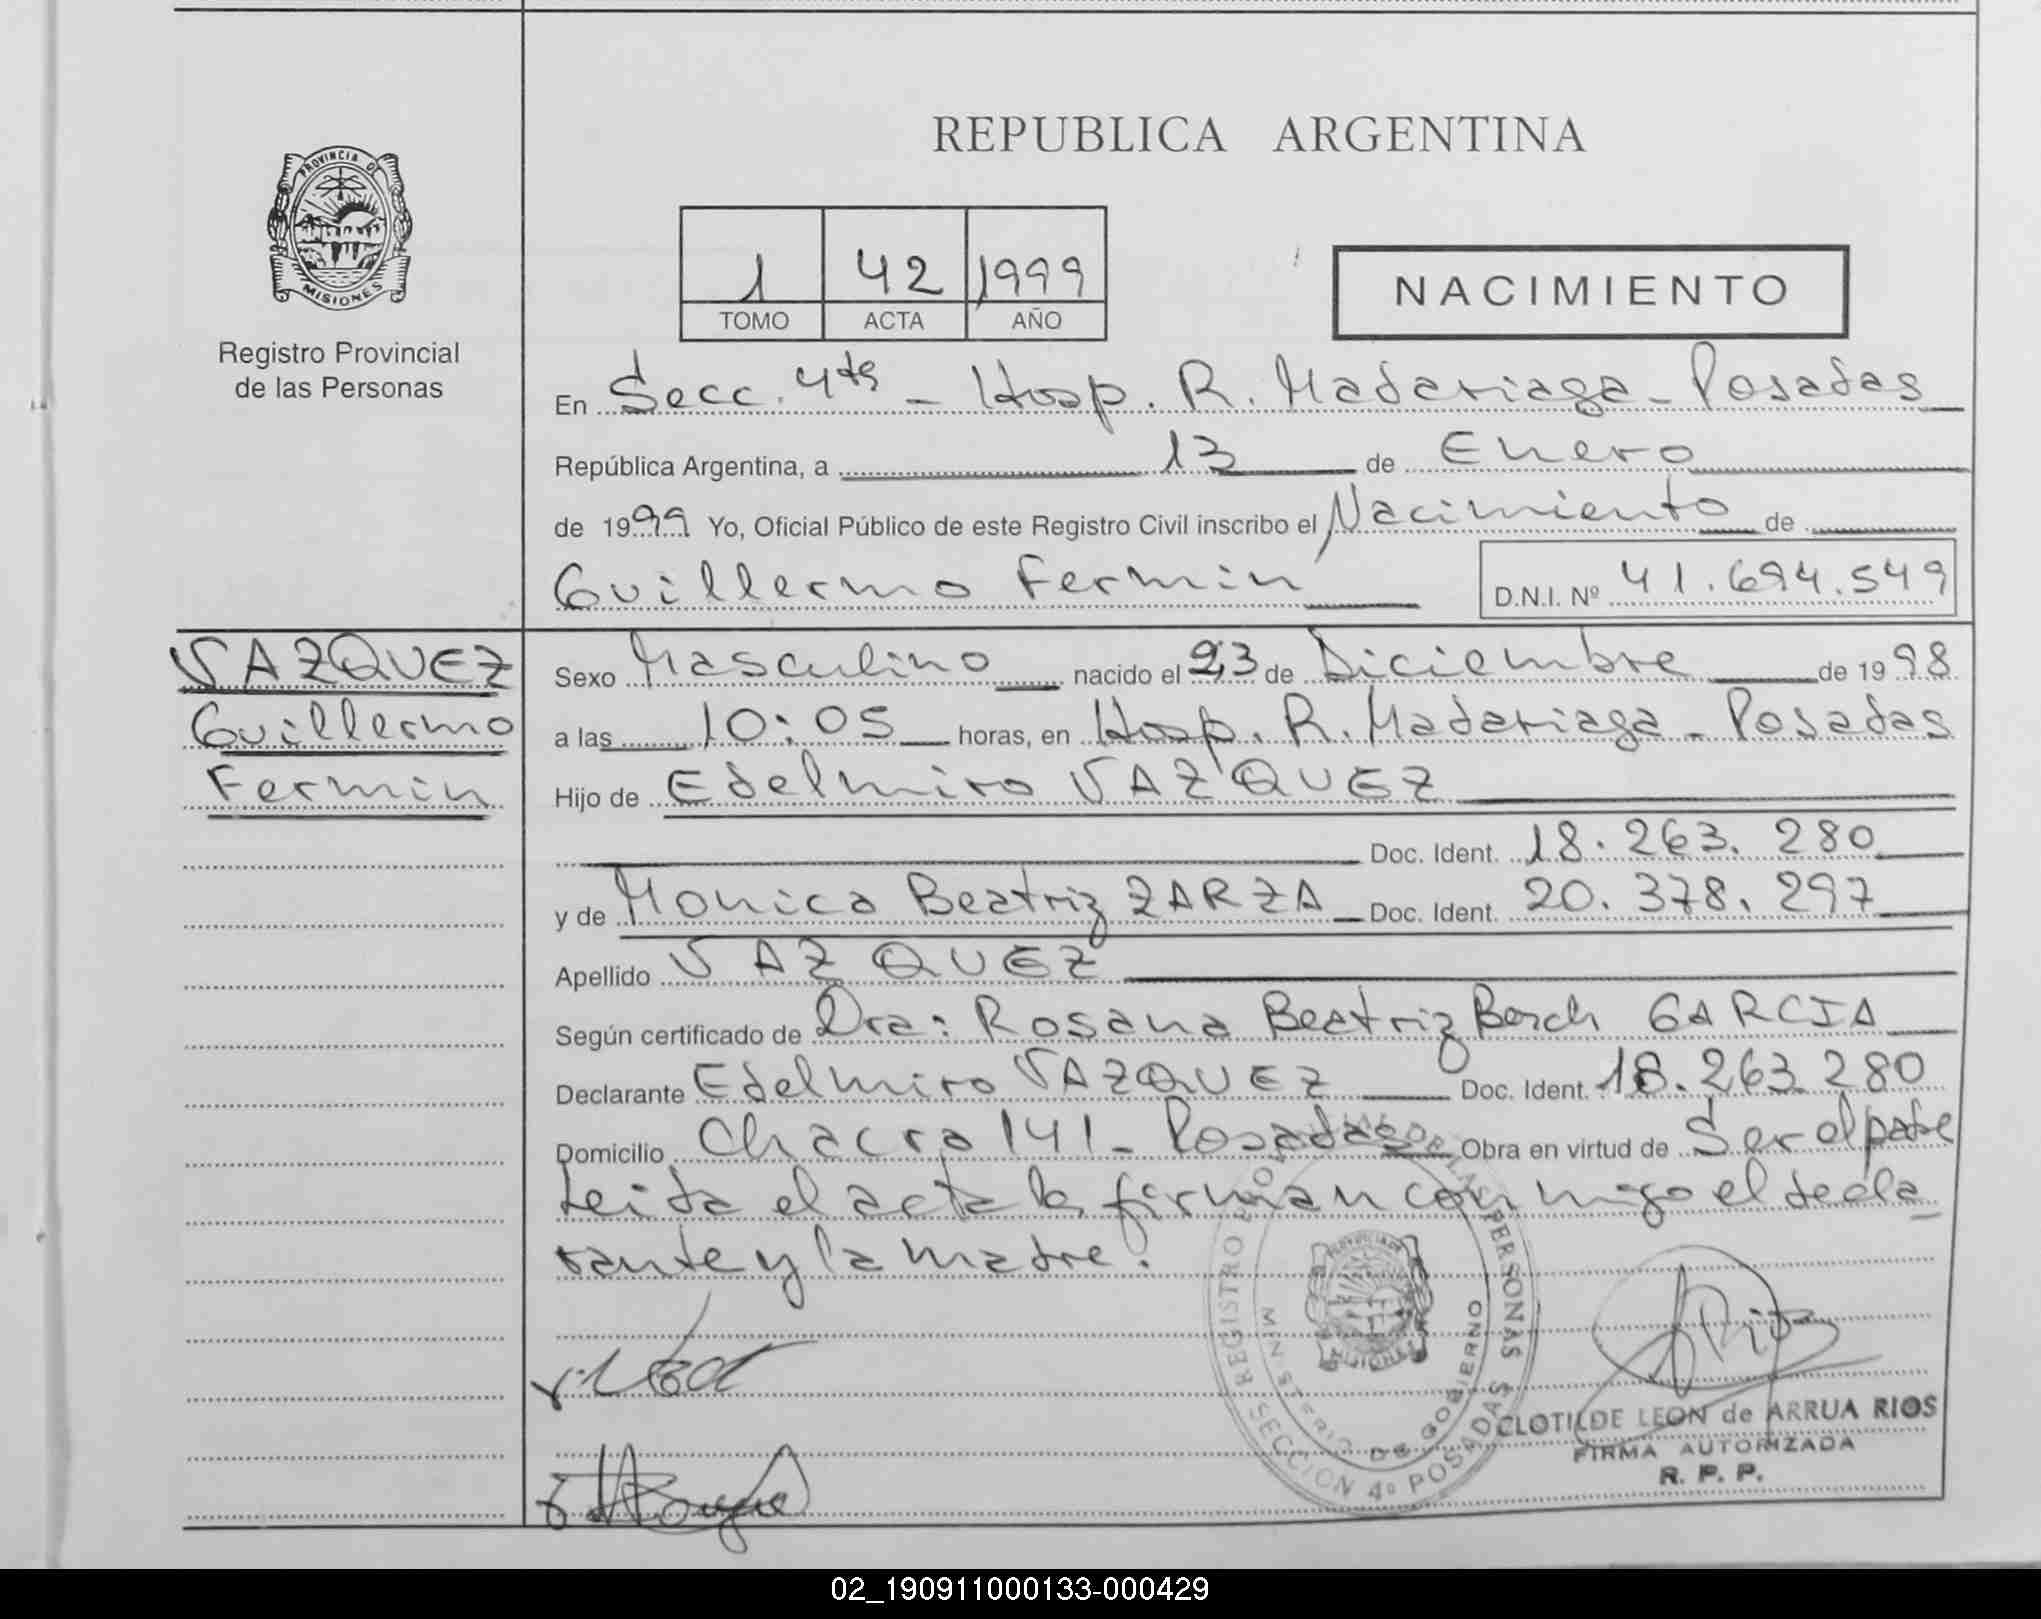 REPUBLICA ARGENTINA
PROVINCIA DE
MISIONES
Registro Provincial
de las Personas
1 42 1999
TOMO ACTA AÑO
NACIMIENTO
En Secc. 4ta - Hosp. R. Madariaga - Posadas
República Argentina, a 13 de Enero
de 1999 Yo, Oficial Público de este Registro Civil inscribo el Nacimiento de
Guillermo Fermin D.N.I. Nº 41.694.549
VAZQUEZ
Guillermo
Fermin
Sexo Masculino nacido el 23 de Diciembre de 1998
a las 10:05 horas, en Hosp. R. Madariaga - Posadas
Hijo de Edelmiro VAZQUEZ
Doc. Ident. 18.263.280
y de Monica Beatriz ZARZA Doc. Ident. 20.378.297
Apellido VAZQUEZ
Según certificado de Dra: Rosana Beatriz GARCIA
Declarante Edelmiro VAZQUEZ Doc. Ident. 18.263.280
Domicilio Chacra 141 - Posadas Obra en virtud de Ser el padre
Leida el acta la firman conmigo el decla
rante y la madre.
REGISTRO PROVINCIAL DE LAS PERSONAS
MINISTERIO DE GOBIERNO
SECCION 4º POSADAS
MISIONES
CLOTILDE LEON de ARRUA RIOS
FIRMA AUTORIZADA
R. P. P.
02_190911000133-000429